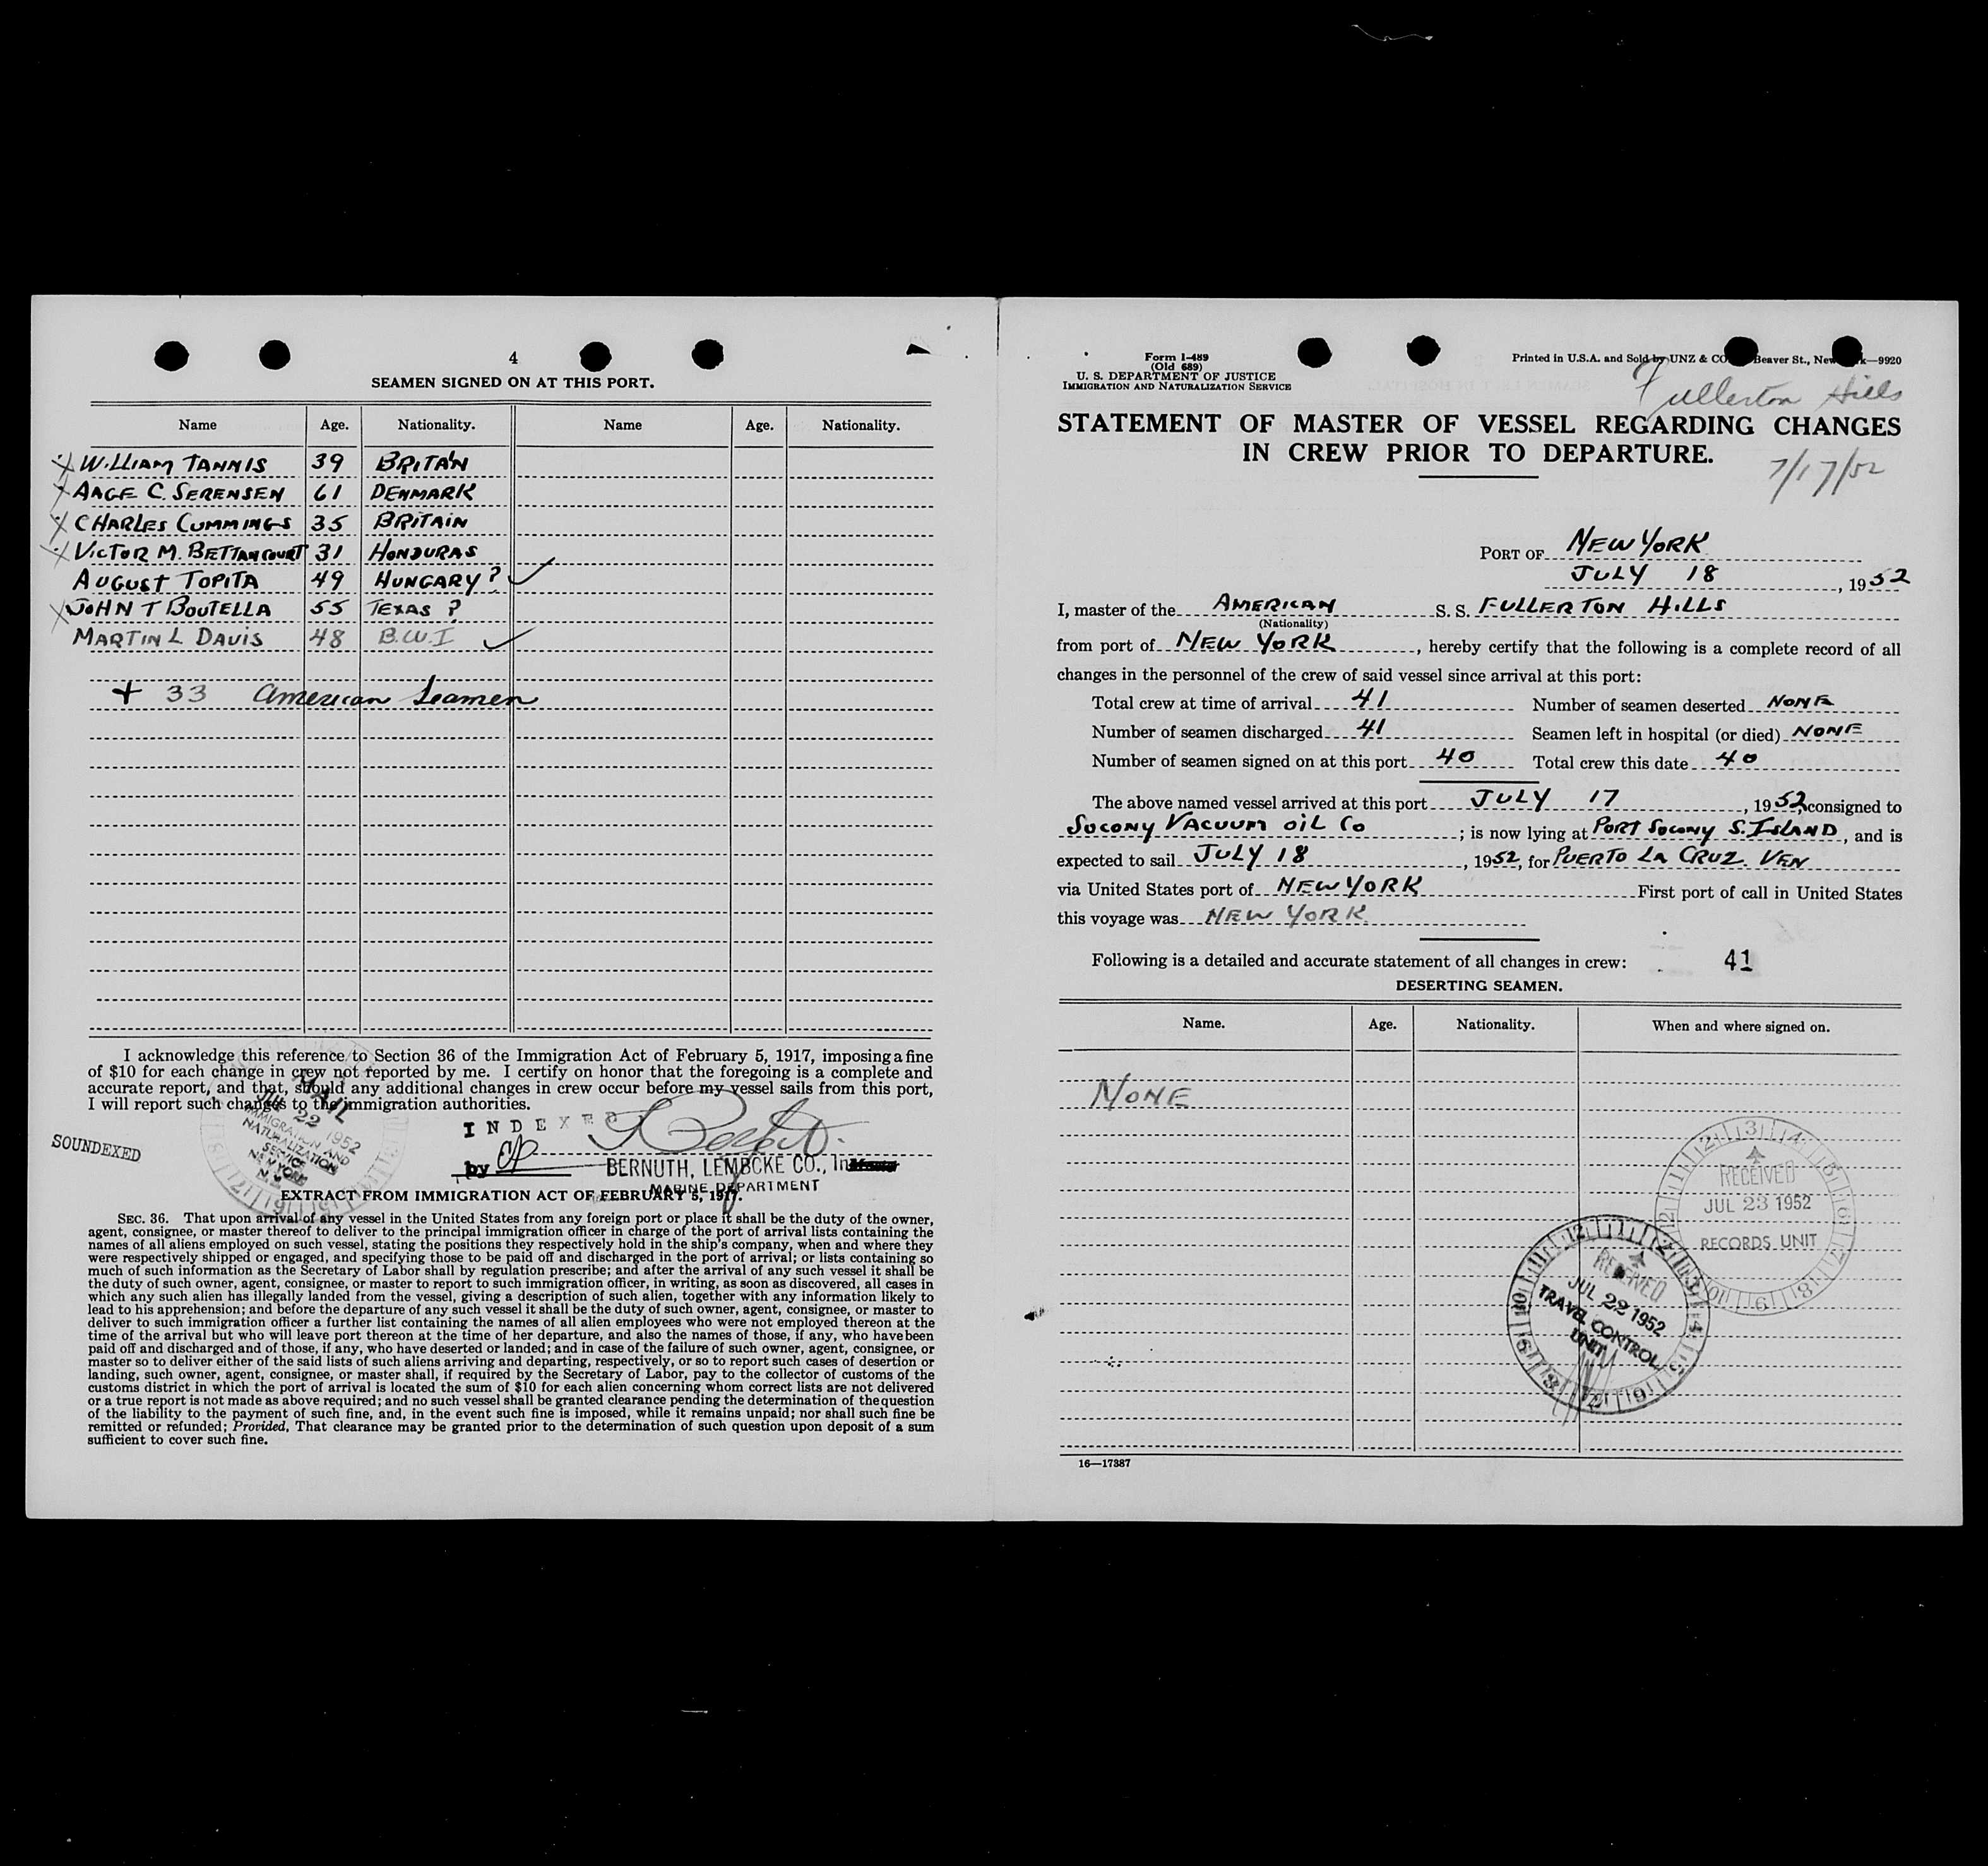 4
SEAMEN SIGNED ON AT THIS PORT.
Name Age. Nationality. Name Age. Nationality.
WILLIAM TANNIS 39 BRITAIN
AAGE C. SERENSEN 61 DENMARK
CHARLES CUMMINGS 35 BRITAIN
VICTOR M. BETTANCOURT 31 HONDURAS
AUGUST TOPITA 49 HUNGARY ?
JOHN T BOUTELLA 55 TEXAS ?
MARTIN L DAVIS 48 B.W.I
+ 33 American Seamen
I acknowledge this reference to Section 36 of the Immigration Act of February 5, 1917, imposing a fine
of $10 for each change in crew not reported by me. I certify on honor that the foregoing is a complete and
accurate report, and that, should any additional changes in crew occur before my vessel sails from this port,
I will report such changes to the immigration authorities.
MAIL
JUL 22 1952
IMMIGRATION AND
NATURALIZATION
SERVICE
NEW YORK
N.Y.
SOUNDEXED
INDEXED
by
BERNUTH, LEMBCKE CO., In
MARINE DEPARTMENT
EXTRACT FROM IMMIGRATION ACT OF FEBRUARY 5, 1917.
SEC. 36. That upon arrival of any vessel in the United States from any foreign port or place it shall be the duty of the owner,
agent, consignee, or master thereof to deliver to the principal immigration officer in charge of the port of arrival lists containing the
names of all aliens employed on such vessel, stating the positions they respectively hold in the ship's company, when and where they
were respectively shipped or engaged, and specifying those to be paid off and discharged in the port of arrival; or lists containing so
much of such information as the Secretary of Labor shall by regulation prescribe; and after the arrival of any such vessel it shall be
the duty of such owner, agent, consignee, or master to report to such immigration officer, in writing, as soon as discovered, all cases in
which any such alien has illegally landed from the vessel, giving a description of such alien, together with any information likely to
lead to his apprehension; and before the departure of any such vessel it shall be the duty of such owner, agent, consignee, or master to
deliver to such immigration officer a further list containing the names of all alien employees who were not employed thereon at the
time of the arrival but who will leave port thereon at the time of her departure, and also the names of those, if any, who have been
paid off and discharged and of those, if any, who have deserted or landed; and in case of the failure of such owner, agent, consignee, or
master so to deliver either of the said lists of such aliens arriving and departing, respectively, or so to report such cases of desertion or
landing, such owner, agent, consignee, or master shall, if required by the Secretary of Labor, pay to the collector of customs of the
customs district in which the port of arrival is located the sum of $10 for each alien concerning whom correct lists are not delivered
or a true report is not made as above required; and no such vessel shall be granted clearance pending the determination of the question
of the liability to the payment of such fine, and, in the event such fine is imposed, while it remains unpaid; nor shall such fine be
remitted or refunded; Provided, That clearance may be granted prior to the determination of such question upon deposit of a sum
sufficient to cover such fine.
Form I-489
(Old 689)
U. S. DEPARTMENT OF JUSTICE
IMMIGRATION AND NATURALIZATION SERVICE
Printed in U.S.A. and Sold by UNZ & CO Beaver St., New k—9920
Fullerton Hills
STATEMENT OF MASTER OF VESSEL REGARDING CHANGES
IN CREW PRIOR TO DEPARTURE.
7/17/52
PORT OF NEW YORK
JULY 18, 1952
I, master of the AMERICAN S. S. FULLERTON HILLS
(Nationality)
from port of NEW YORK, hereby certify that the following is a complete record of all
changes in the personnel of the crew of said vessel since arrival at this port:
Total crew at time of arrival 41 Number of seamen deserted NONE
Number of seamen discharged 41 Seamen left in hospital (or died) NONE
Number of seamen signed on at this port 40 Total crew this date 40
The above named vessel arrived at this port JULY 17, 1952, consigned to
SOCONY VACUUM OIL CO; is now lying at PORT SOCONY S. ISLAND, and is
expected to sail JULY 18, 1952, for PUERTO LA CRUZ. VEN
via United States port of NEW YORK First port of call in United States
this voyage was NEW YORK
Following is a detailed and accurate statement of all changes in crew: 41
DESERTING SEAMEN.
Name. Age. Nationality. When and where signed on.
NONE
RECEIVED
JUL 23 1952
RECORDS UNIT
RECEIVED
JUL 22 1952
TRAVEL CONTROL
UNIT
16—17387